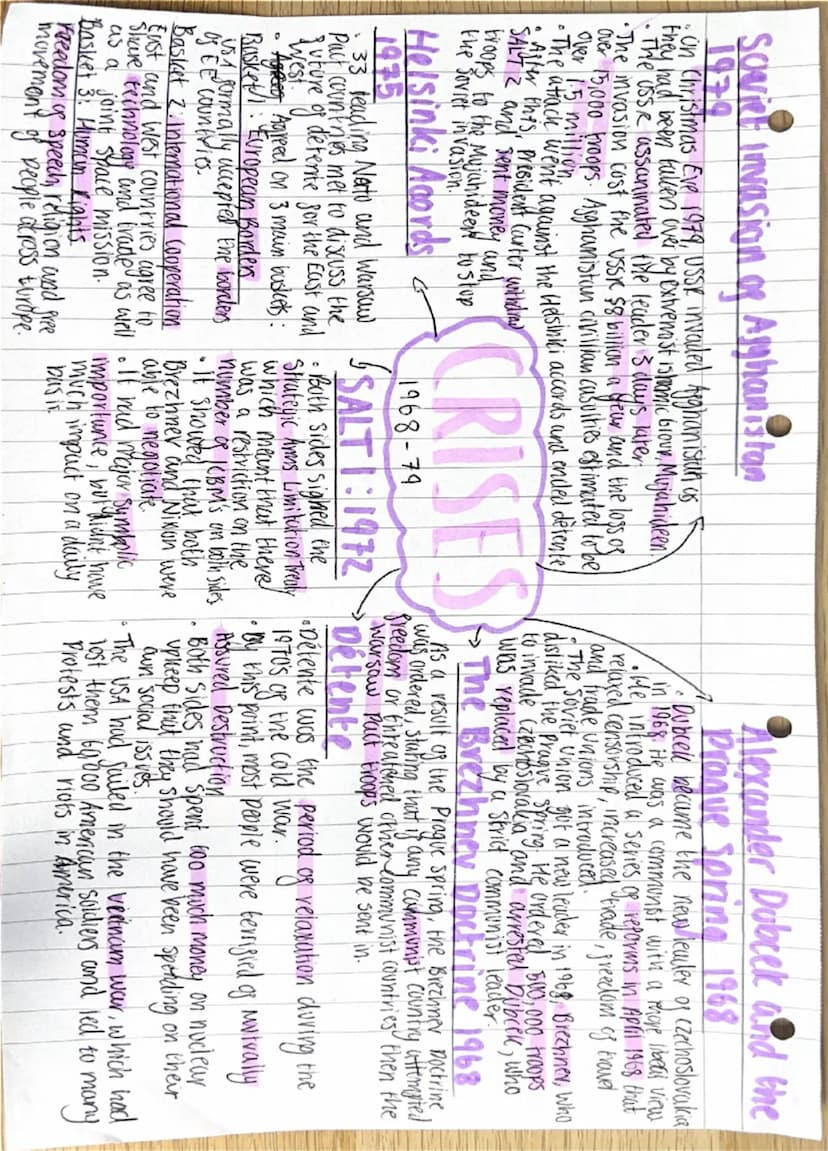 Soviet Invasion of Afghanistan
1979
· On Christmas Eve 1979, USSR invaded Afghanistan as
they had been taken over by extremist islamic group, Mujahideen.
· The USSR assassinated the leader 3 days later.
· The invasion cost the USSR $8 billion a year and the loss of
over 15,000 troops. Afghanistan civilian casulties estimated to be
over 1.5 million.
· The attack went against the Helsinki accords and ended détente
· After this, President Carter withdrew
SALT 2 and sent money and
troops to the Mujahideen to stop
the Soviet invasion.
Helsinki Acords
1975
· 33 leading Nato and Warsaw
Pact countries met to discuss the
future of détente for the East and
West.
· Agreed on 3 main baskets:
Basket 1: European Borders
USA formally accepted the borders
of EE countries.
Basket 2: International Cooperation
East and West countries agree to
share technology and trade as well
as a joint space mission.
Basket 3: Human Rights
Freedom of speech, religion and free
movement of people across Europe.
CRISES
1968-79
SALT 1: 1972
· Both sides signed the
Strategic Arms Limitation Treaty
which meant that there
was a restriction on the
number of ICBM's on both sides
· It showed that both
Brezhnev and Nixon were
able to negotiate.
· It had major symbolic
importance, but didnt have
much impact on a daily
basis.
Alexander Dubcek and the
Prague Spring 1968
· Dubcek became the new leader of Czechoslovakia
in 1968. He was a communist with a more liberal view
· He introduced a series of reforms in April 1968 that
relaxed censorship, increased trade, freedom of travel
and trade unions introduced.
· The Soviet Union got a new leader in 1968, Brezhnev, who
disliked the Prague Spring. He ordered 500,000 troops
to invade Czechoslovakia and arrested Dubcek, who
was replaced by a strict communist leader.
The Brezhnev Doctrine 1968
As a result of the Prague Spring, the Brezhnev Doctrine
was ordered, stating that if any communist country attempted
freedom or threatened other communist countries then the
Warsaw Pact troops would be sent in.
Détente
· Détente was the period of relaxation during the
1970s of the cold war.
· By this point, most people were terrified of Mutually
Assured Destruction
· Both sides had spent too much money on nuclear
upkeep that they should have been spending on their
own social issues.
· The USA had failed in the Vietnam war, which had
lost them 60,000 American soldiers and led to many
Protests and riots in America.